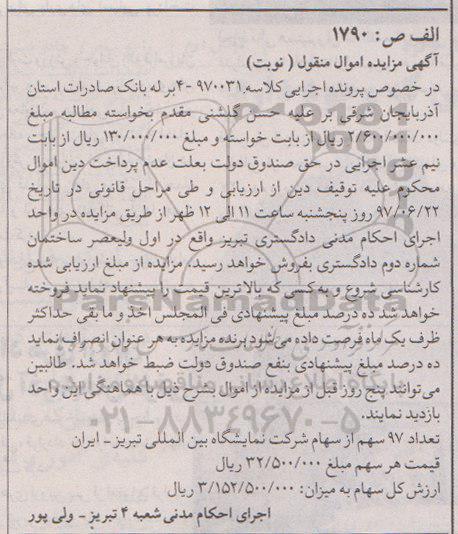 الف ص: ۱۷۹۰
آگهی مزایده اموال منقول ( نوبت)
در خصوص پرونده اجرایی کلاسه ۹۷۰۰۳۱ -۴بر له بانک صادرات استان
آذربایجان شرقی بر علیه حسن گلشنی مقدم بخواسته مطالبه مبلغ
۲/۶۰۰/۰۰۰/۰۰۰ ریال از بابت خواسته و مبلغ ۱۳۰/۰۰۰/۰۰۰ ریال از بابت
نیم عشر اجرایی در حق صندوق دولت بعلت عدم پرداخت دین اموال
محکوم علیه توقیف دین از ارزیابی و طی مراحل قانونی در تاریخ
۹۷/۰۶/۲۲ روز پنجشنبه ساعت ۱۱ الی ۱۲ ظهر از طریق مزایده در واحد
اجرای احکام مدنی دادگستری تبریز واقع در اول ولیعصر ساختمان
شماره دوم دادگستری بفروش خواهد رسید، مزایده از مبلغ ارزیابی شده
کارشناسی شروع و به کسی که بالاترین قیمت را پیشنهاد نماید فروخته
خواهد شد ده درصد مبلغ پیشنهادی فی المجلس اخذ و ما بقی حداکثر
ظرف یک ماه فرصت داده می شود برنده مزایده به هر عنوان انصراف نماید
ده درصد مبلغ پیشنهادی بنفع صندوق دولت ضبط خواهد شد. طالبین
می توانند پنج روز قبل از مزایده از اموال بشرح ذیل با هماهنگی این واحد
بازدید نمایند.
تعداد ۹۷ سهم از سهام شرکت نمایشگاه بین المللی تبریز - ایران
قیمت هر سهم مبلغ ۳۲/۵۰۰/۰۰۰ ریال
ارزش کل سهام به میزان: ۳/۱۵۲/۵۰۰/۰۰۰ ریال
اجرای احکام مدنی شعبه ۴ تبریز - ولی پور
ParsNamadData
۰۲۱-۸۸۳۴۹۶۷۰-۵